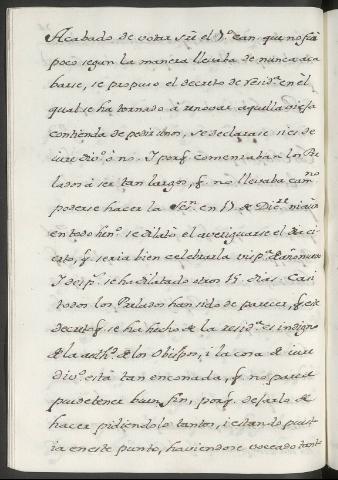 Acabado de votar sre el 7º can. que no fue
poco segun la manera llevaba de nunca aca
barse, se propuso el decreto de residª en el
qual se ha tornado á renovar aquella vieja
contienda de pedir unos, se declarase si es de
iure divº ó no. I porq comenzaban los Pre
lados á ser tan largos, q no llevaba camno
poderse hacer la Sesn en 17 de Dicre ni aun
en todo henº se dilató el averiguarse el dia ci
erto, q seria bien celebrarla vispª de año nuevo
I despª se ha dilatado otros 15 dias. Casi
todos los Perlados han sido de parecer, q este
decreto q se ha hecho de la residª es indigno
de la authd de los Obispos, i la cosa de iure
divº está tan enconada, q no parece
puede tener buen fin, porq dejarlo de
hacer pidiendolo tantos, i estando puest
ia en este punto, haviendose voceado tanto